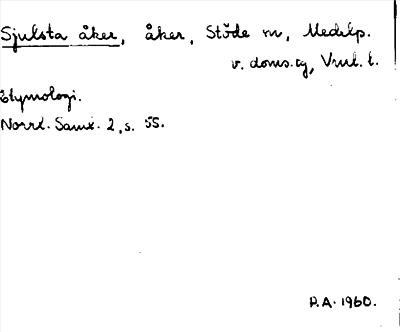 Sjulsta åker, åker, Stöde sn, Medelp.
v. doms.sg, Vnl. l.
Etymologi.
Norrl. Saml. 2, s. 55.
P.A. 1960.